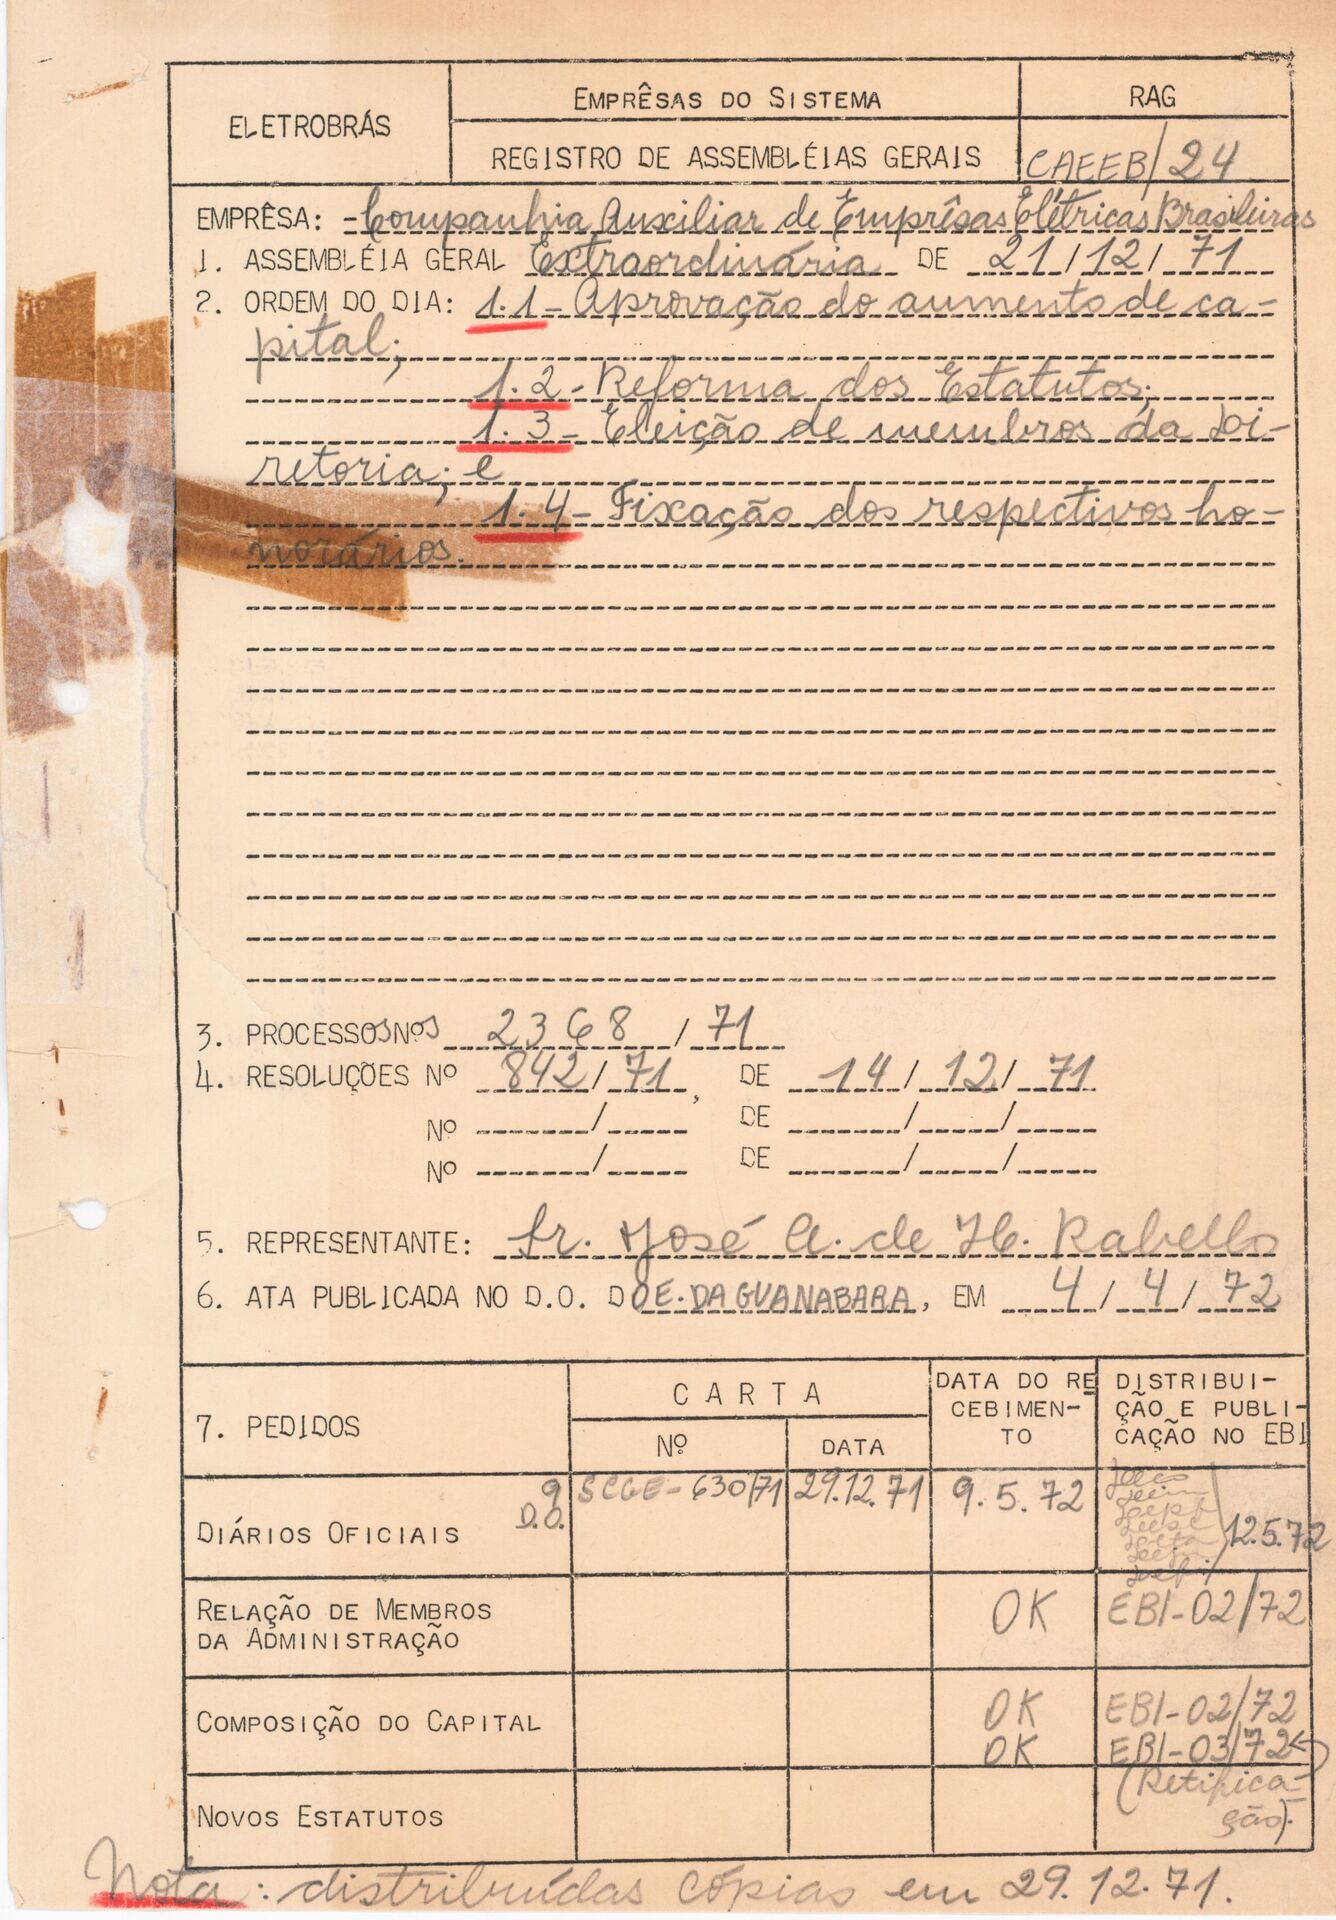 ELETROBRÁS
EMPRÊSAS DO SISTEMA
RAG
REGISTRO DE ASSEMBLÉIAS GERAIS
CAEEB/24
EMPRÊSA: - Companhia Auxiliar de Emprêsas Elétricas Brasileiras
1. ASSEMBLÉIA GERAL Extraordinária DE 21/12/71
2. ORDEM DO DIA: 1.1 - Aprovação do aumento de ca-
pital;
1.2 - Reforma dos Estatutos;
1.3 - Eleição de membros da Di-
retoria; e
1.4 - Fixação dos respectivos ho-
norários.
3. PROCESSOS Nºs 2368/71
4. RESOLUÇÕES Nº 842/71, DE 14/12/71
Nº / DE / /
Nº / DE / /
5. REPRESENTANTE: Sr. José A. de H. Rabello
6. ATA PUBLICADA NO D.O. DO E. DA GUANABARA, EM 4/4/72
7. PEDIDOS
CARTA
Nº
DATA
DATA DO RE
CEBIMEN-
TO
DISTRIBUI-
ÇÃO E PUBLI-
CAÇÃO NO EBI
DIÁRIOS OFICIAIS
9
D.O.
SCGE-630/71 29.12.71 9.5.72
12.5.72
RELAÇÃO DE MEMBROS
DA ADMINISTRAÇÃO
OK EBI-02/72
COMPOSIÇÃO DO CAPITAL
OK EBI-02/72
OK EBI-03/72
(Retifica-
ção).
NOVOS ESTATUTOS
Nota: distribuídas cópias em 29.12.71.